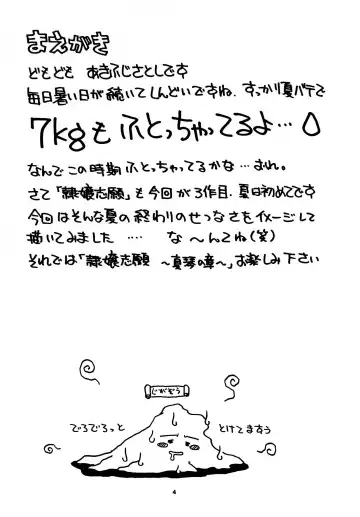 まえがき
どもども あきふじさとしです
毎日暑い日が続いてしんどいですね. すっかり夏バテで
7kgもふとっちゃってるよ…
なんでこの時期ふとっちゃってるかな…おれ。
さて「隷嬢志願」も今回が3作目. 夏は初めてです
今回はそんな夏の終わりのせつなさをイメージして
描いてみました …. な〜んてね(笑)
それでは「隷嬢志願 〜真琴の章〜」お楽しみ下さい
じがぞう
でろでろっと とけてますう
4